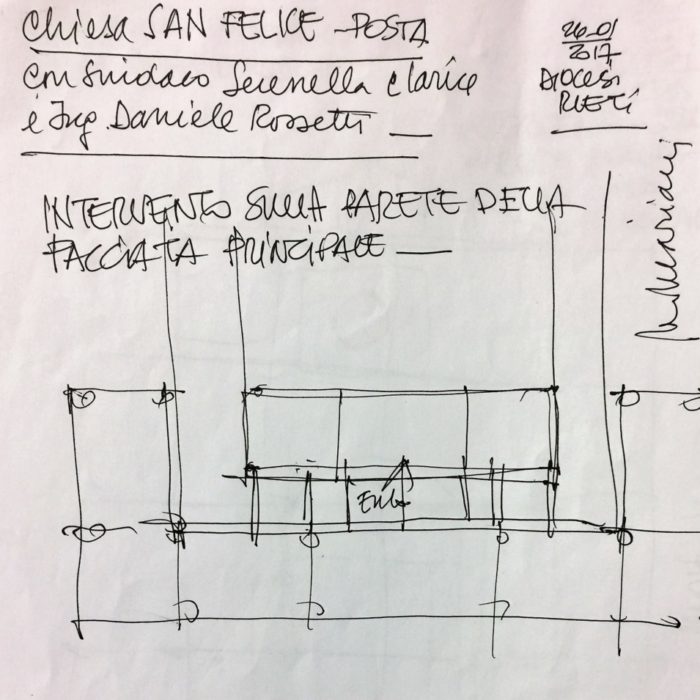 Chiesa SAN FELICE - POSTA
con Sindaco Serenella Clarice
e Ing. Daniele Rossetti
26-01
2017
DIOCESI
RIETI
INTERVENTO SULLA PARETE DELLA
FACCIATA PRINCIPALE